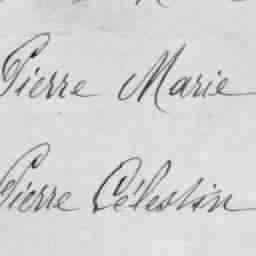 Pierre Marie
Pierre Célestin